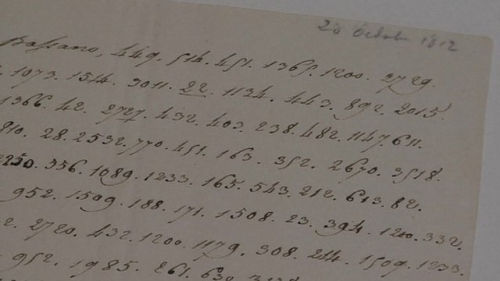 20 Octobre 1812
Bassano, 449. 514. 451. 1365. 1200. 2729.
1073. 1514. 3011. 22. 1134. 443. 892. 2015.
1366. 42. 2727. 432. 403. 238. 482. 1147. 611.
910. 28. 2532. 770. 451. 163. 352. 2670. 3518.
2250. 356. 1089. 1233. 165. 543. 212. 613. 82.
952. 1509. 188. 171. 1508. 23. 394. 1200. 332.
2. 2720. 432. 1200. 1179. 308. 214. 1509. 1233.
952. 1985. 261. 630.